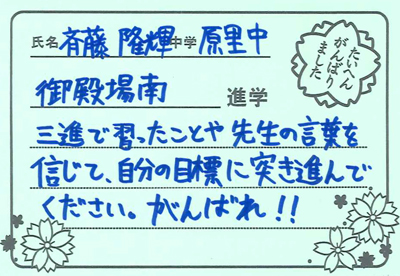 氏名 斉藤 隆輝 中学 原里中
御殿場南 進学
三進で習ったことや先生の言葉を
信じて、自分の目標に突き進んで
ください。がんばれ!!
たいへん
がんばり
ました